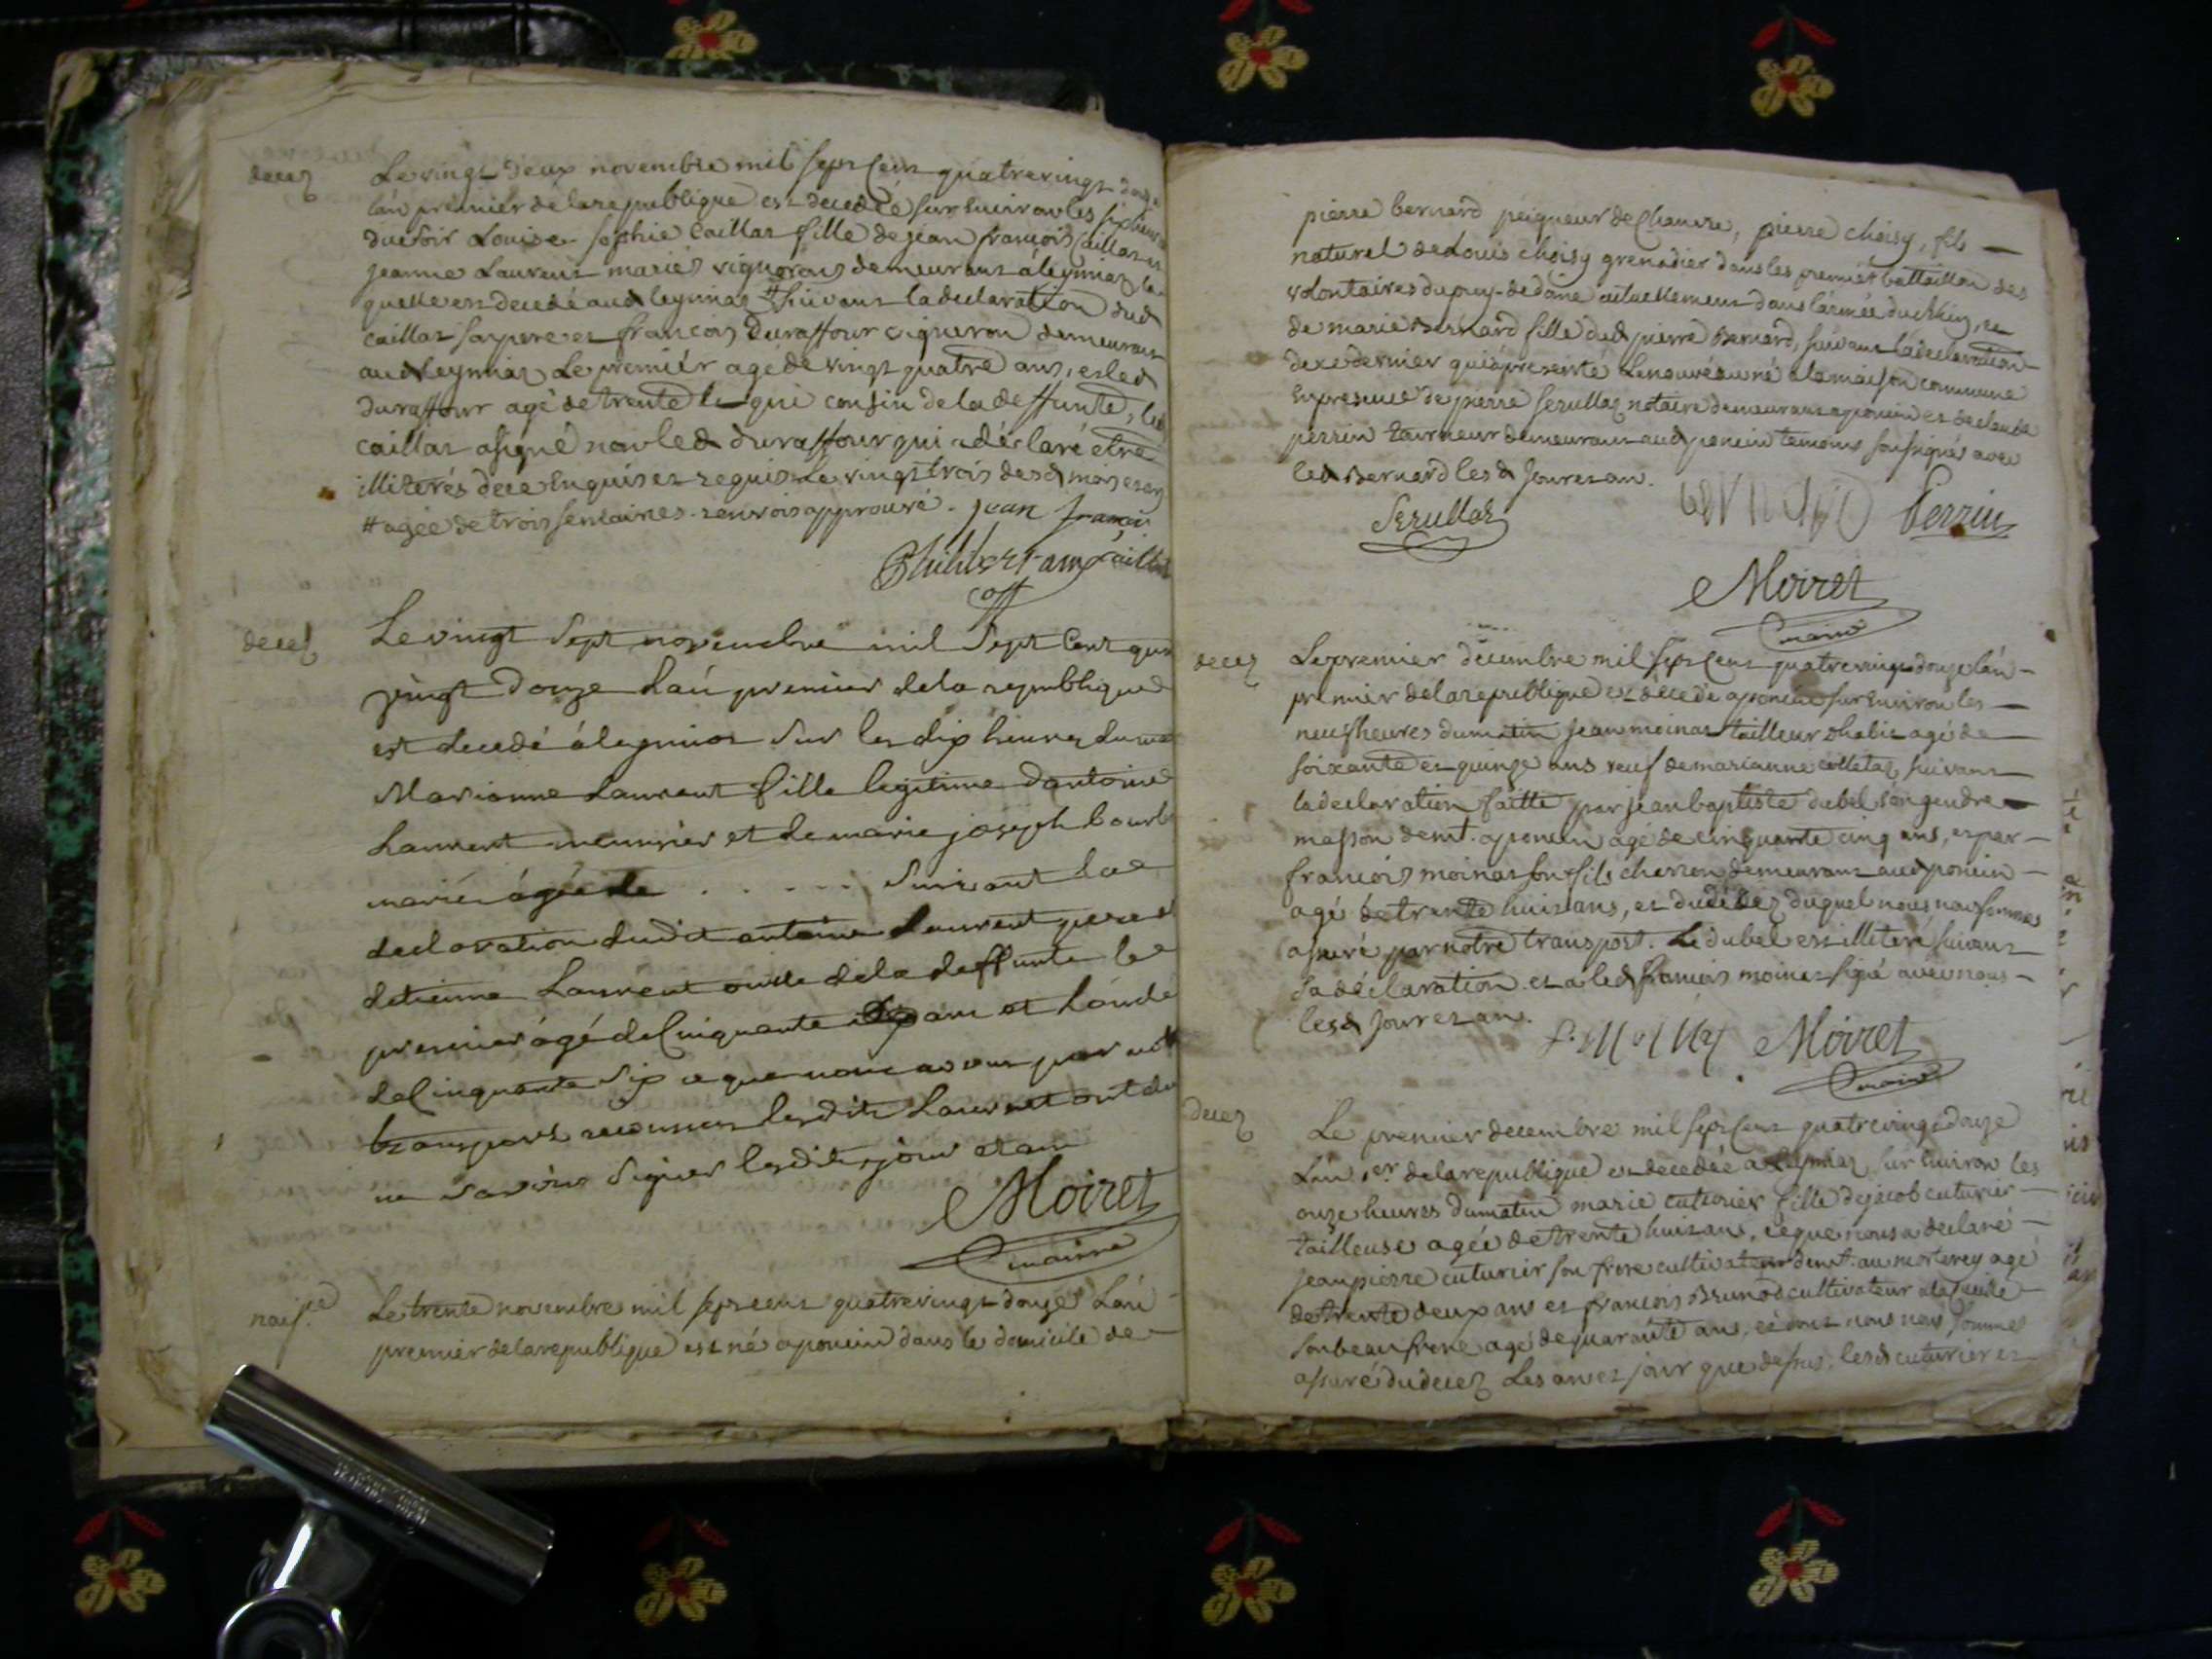 decez
Le vingt deux novembre mil sept cent quatrevingt douze
l'an premier de la republique est decedée sur environ les six heures
du soir Louise Sophie Caillat fille de jean françois Caillat et
jeanne Laurent mariés vignerons demeurant a leymiaz la
quelle est decedé aud leymiaz # suivant la declaration dud
caillat son pere et francois Duraffour vigneron demeurant
aud leymiaz Le premiér agé de vingt quatre ans, et led
duraffour agé de trente le qui cousin de la deffunte, led
caillat a signé non led duraffour qui a déclaré etre
illiterés de ce enquis et requis Le vingt trois desd mois et an
# agée de trois semaines renvois approuvé. jean françois
Philibert caillat
off
decez
Le vingt Sept novembre mil Sept Cent quatre
vingt Douze L'an premier de la republique
est decedé à leymiaz Sur les dix heures du matin
Marianne Laurent fille legitime d'antoine
Laurent meunnier et de marie joseph
marié agée de . . . . . Suivant la
declaration dudit antoine Laurent pere et
detienne Laurent oncle de la deffunte le
premier âgé de Cinquante ans et L'oncle
de Cinquante Six ce que nous avons par notre
transport reconnu lesdits Laurent ont dit
ne savoir Signer lesdits jour et an
Moiret
maire
naiss.ce
Le trente novembre mil sept cent quatrevingt douze L'an
premier de la republique est né a poncin dans le domicile de
pierre bernard peigneur de Chanvre, pierre choisy, fils
naturel de Louis choisy grenadier dans les premier battaillon des
volontaires du puy-de-dôme actuellement dans l'armée du Rhin, et
de marie Bernard fille dud pierre Bernard, suivant la declaration
de ce dernier qui a presenté Le nouveau né a la maison commune
En presence de pierre Serullaz notaire demeurant a poncin et de claude
perrin tourneur demeurant aud poncin temoins soussignés avec
led Bernard lesd Jour et an.
Serullaz
Perrin
Moiret
maire
decez
Le premier decembre mil sept cent quatrevingt douze l'an
premier de la republique est décedé a poncin sur Environ les
neuf heures du matin jean moinat tailleur d'habit agé de
soixante et quinze ans veuf de marianne colletaz suivant
la declaration faitte par jean baptiste dubel son gendre
masson demt. a poncin agé de cinquante cinq ans, et par
francois moinat son fils charron demeurant aud poncin
agé de trente huit ans, et du décez duquel nous nous sommes
assuré par notre transport. Le dubel est illiteré suivant
sa déclaration et a led francois moinat signé avec nous
lesd Jour et an.
Moiret
maire
decez
Le premier decembre mil sept cent quatrevingt douze
L'an 1er. de la republique est decedée a Leymiaz sur Environ les
onze heures du matin marie cuturier fille de jacob cuturier
tailleuse agée de trente huit ans, ce que nous a declaré
jean pierre cuturier son frere cultivateur demt. au morterey agé
de trente deux ans et francois Brunod cultivateur
son beau frere agé de quarante ans, et dont nous nous sommes
assuré du decez Les an et jour que dessus, lesd cuturier et